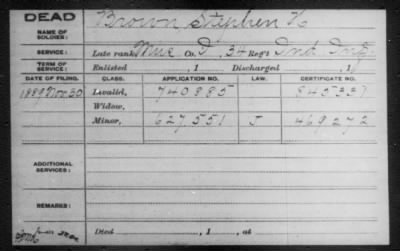 DEAD
NAME OF SOLDIER: Brown Stephen K
SERVICE: Late rank, Co. D, 34 Reg't Ind. Inf.
TERM OF SERVICE: Enlisted , 1 Discharged , 1
DATE OF FILING. CLASS. APPLICATION NO. LAW. CERTIFICATE NO.
1889 Nov 30 Invalid, 740885 845337
Widow,
Minor, 627,551 J 469272
ADDITIONAL SERVICES:
REMARKS:
Died , 1 , at